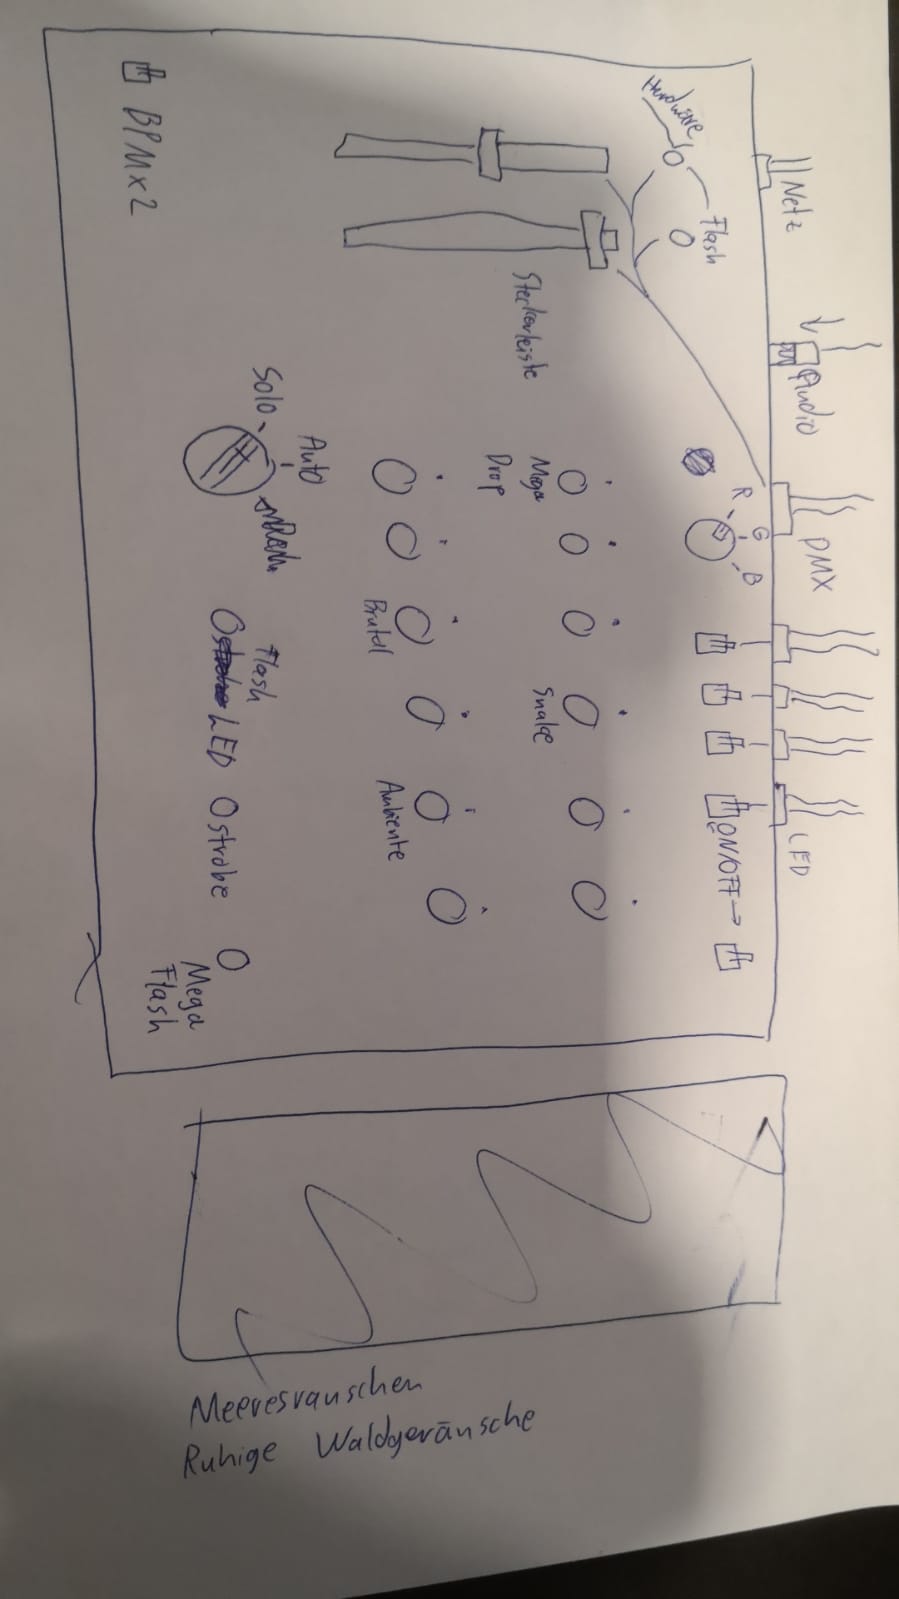 Netz
Audio
DMX
LED
Hardware
Flash
R G B
ON/OFF →
Steckerleiste
Mega
Drop
Snake
Brutal
Ambiente
Solo
Auto
Flash
LED
Strobe
Mega
Flash
BPM x 2
Meeresrauschen
Ruhige Waldgeräusche